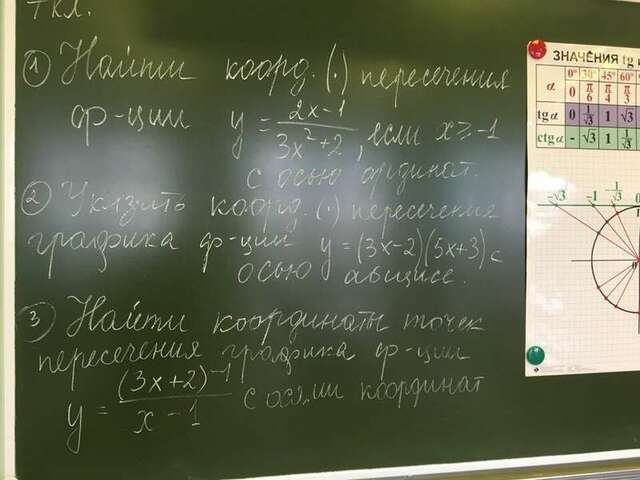 7 кл.
① Найти коорд. (·) пересечения
ф-ции y = (2x-1)/(3x²+2), если x ≥ -1
с осью ординат.
② Указать коорд. (·) пересечения
графика ф-ции y = (3x-2)(5x+3) с
осью абсцисс.
③ Найти координаты точек
пересечения графика ф-ции
y = ((3x+2)-1)/(x-1) с осями координат
ЗНАЧЕНИЯ tg и
α 0° 30° 45° 60°
0 π/6 π/4 π/3
tgα 0 1/√3 1 √3
ctgα - √3 1 1/√3
-√3 -1 -1/√3 0